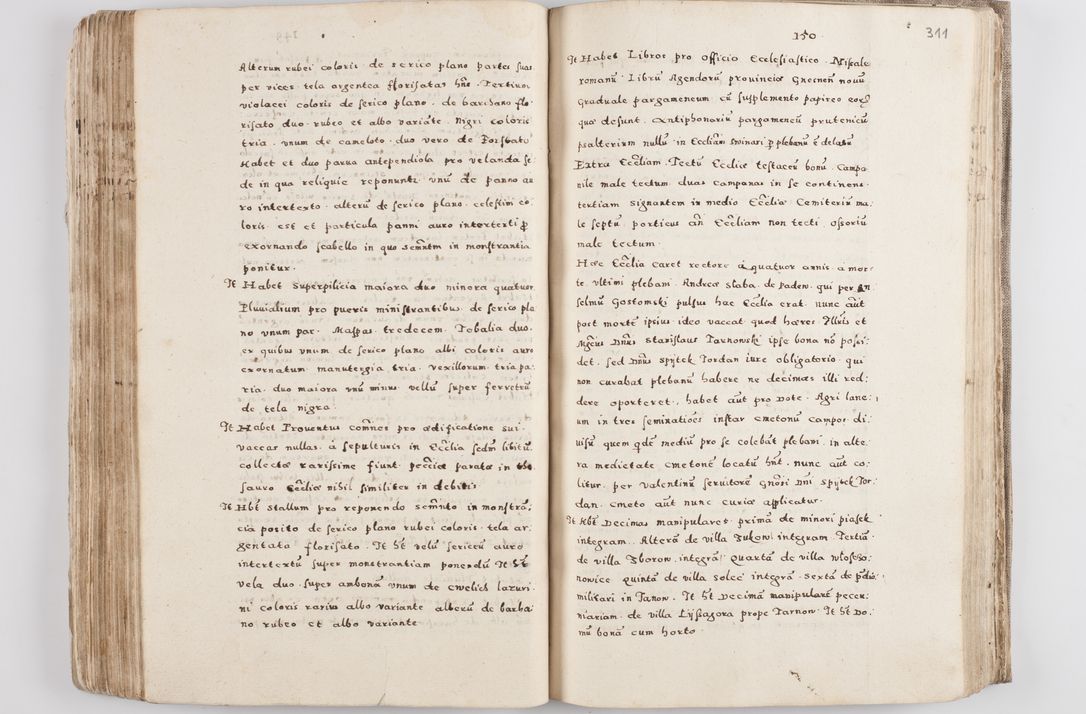 Alterum rubei coloris de serico plano partes suas
per vices tela argentea florisatas hñe. Tertium
violacei coloris de serico plano. de barchano flo
risato duo. rubeo et albo variãte. Nigri coloris
tria. vnum de cameloto. duo vero de
Habet et duo parua antependiola pro velanda se
de in qua reliquie reponunt: vnũ de panno au
ro intertexto. alterũ de serico plano. celestim co
loris. est et particula panni auro intertexti p
exornando scabello in quo in monstrantia
ponitur.
It Habet Superpilicia maiora duo minora quatuor
Pluuialium pro pueris ministrantibus de serico pla
no vnum par. Mappas tredecem. Tobalia duo.
ex quibus vnum de serico plano albi coloris auro
exornatum. manutergia tria. vexillorum tria pa:
ria. duo maiora vnũ minus. vellũ super ferretrũ
de tela nigra.
It Habet Prouentus com̃nes pro ædificatione sui.
vaccas nullas. á sepulturis in Ecc̃lia sedm̃ libitũ.
collectæ rarissime fiunt. parata in the
sauro Ecc̃liæ nihil similiter in debitis.
It Hbt̃ stallum pro reponendo in monstrã;
cia posito de serico plano rubei coloris. tela ar
gentata florisato. It ht̃ velũ sericeũ auro
intertextũ super monstrantiam ponendũ It ht̃
vela duo. super ambonã vnum de cwelich lazuri
ni coloris rarius albo variante alterũ de barba
no rubeo et albo variante
150
311
It Habet Libros pro officio Ecclesiastico. Missale
romanũ. Librũ Agendorũ prouinciæ Gnesnen̄ nouũ
Graduale pargameneum cũ supplemento papireo eorũ
quæ desunt. Antiphonariũ pargameneũ prutenicũ
psalterium nullũ in Ecc̃liam p plebanũ ẽ delatũ
Extra Ecc̃liam. Tectũ Ecc̃liæ testaceũ bonũ. Campa
nile male tectum. duas campanas in se continens.
tertiam signantem in medio Ecc̃liæ. Cemiteriũ ma:
le septũ. porticus añ Ecc̃liam non tecti ossoriũ
male tectum.
Hæc Ecc̃lia caret rectore á quatuor annis. a mor:
te vltimi plebani. Andreæ slaba. de Paden. qui per An
selmũ Gostomski pulsus hac Ecc̃lia erat. nunc aũt
post mortẽ ipsius ideo vaccat quod hæres Illũis et
Mgcũs Dñus Stanislaus Tarnowski ipse bona nõ possi:
det. sed Dñus spytek Jordan iure obligatorio. qui
non curabat plebanũ habere ne decimas illi red:
dere oporteret. habet aũt pro Dote. Agri lane:
um in tres seminatiões instar cmetonũ campos di:
uisũ quem qde mediũ pro se colebãt plebani. in alte:
ra medietate cmetonẽ locatũ hñt. nunc aũt co:
litur. per Valentinũ seruitorẽ Dñi spytek Jor:
dan. cmeto aũt nunc curiæ applicatur.
It Hbt̃ Decimas manipulares. primã de minori piasek
integram. Alterã de villa Zukow integram Tertiã
de villa Zborow. integrã. Quartã de villa wlosso:
nowice quintã de villa solec integrã. sextã de pdio
militari in Tanow. It ht̃ Decimã manipularẽ pecu:
niariam. de villa Lyssagora prope Tarnow. It ht̃ Do:
mũ bonã cum horto.